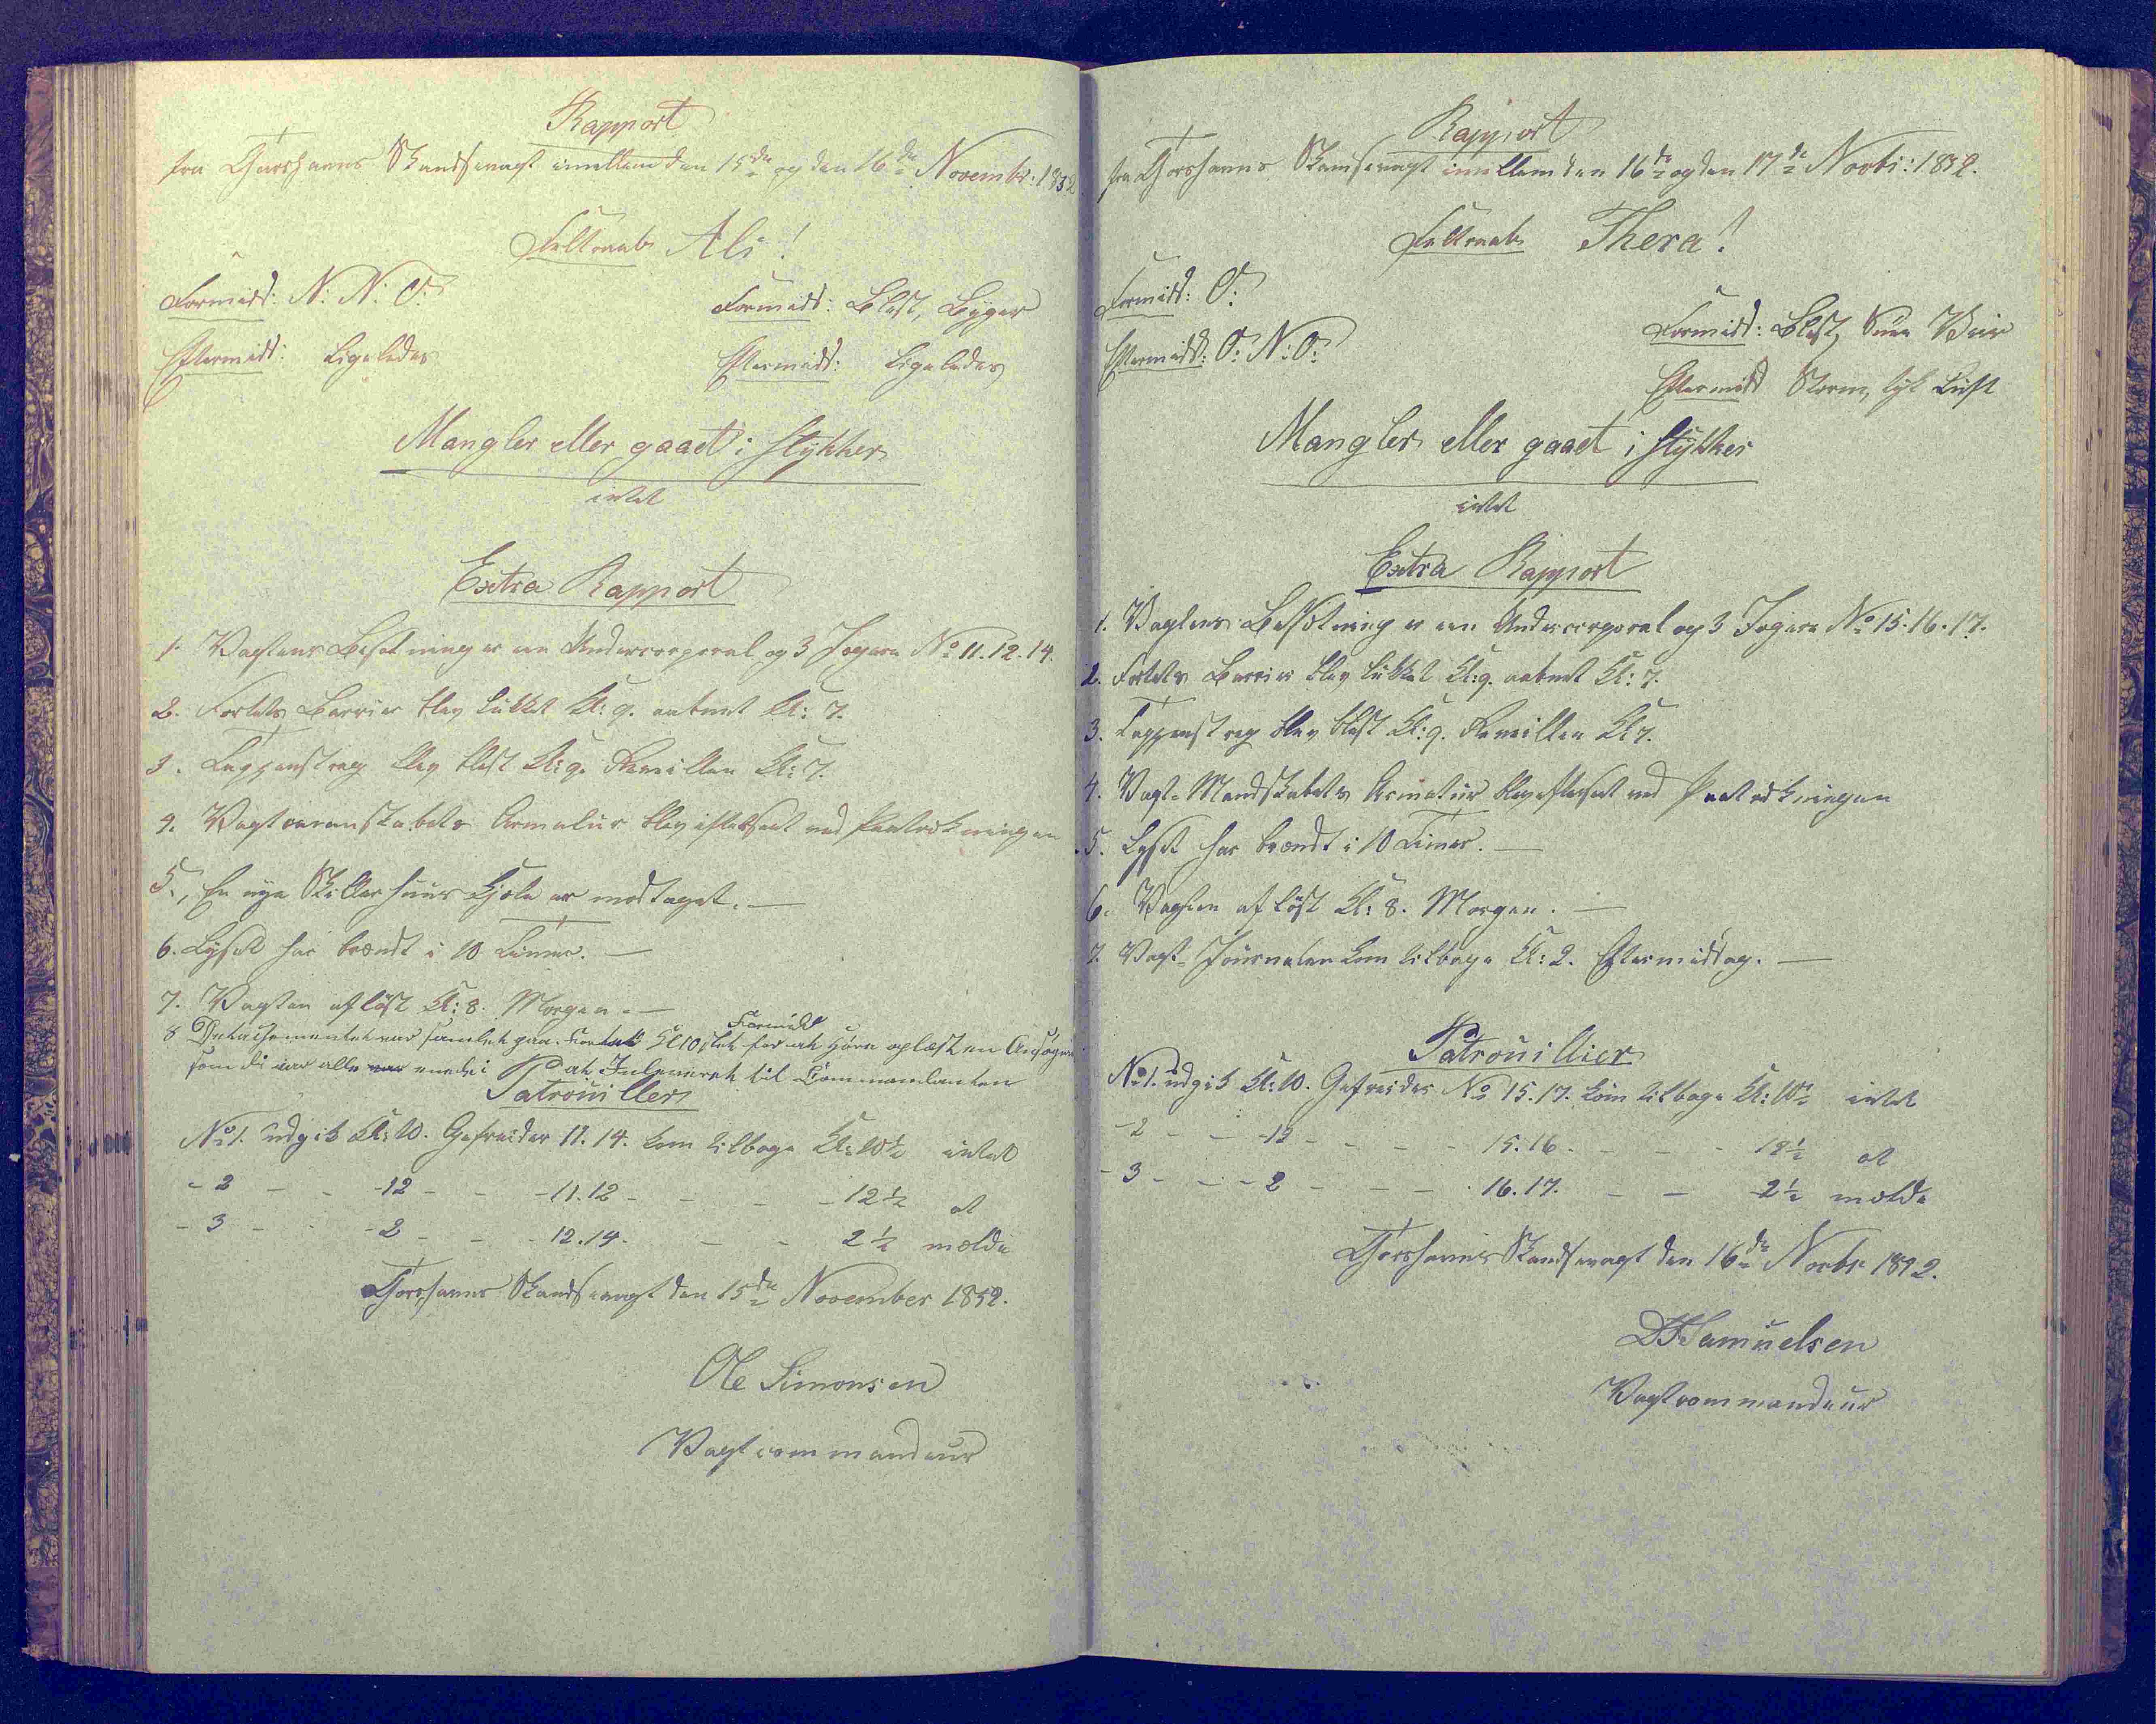 Rapport
fra Thorshavns Skandsevagt imellem den 15de og den 16de Novembr: 1852
Feltraab Ali!
Formidd: N: N: O: Formidd: Blæst, Byger
Eftermidd: Ligeledes Eftermidd: Ligeledes
Mangler eller gaaet i stykker
intet
Extra Rapport
1. Vagtens Besætning er een Undercorporal og 3 Jægere No 11. 12. 14.
2. Fortets Barrier blev lukket Kl: 9. aabnet Kl: 7.
3. Tappenstreg blev blæst Kl: 9. Reveillen Kl: 7.
4. Vagtmandskabets Armatur blev efterseet ved Paatrækningen
5., En nye Skillerhuus Kjole er modtaget. —
6. Lyset har brændt i 10 Timer. —
7. Vagten afløst Kl: 8. Morgen. —
8 Detachementet var samlet paa Kl 10 slet Formidd for at høre oplæst en Ansøgn
som di var alle enede i at Inleverek til Commandanten
Patrouiller
No 1. udgik Kl: 10. Gefreider 11. 14. kom tilbage Kl: 10½ intet
- 2 - - -12 - - -11. 12 - - - - 12½ at
- 3 - - -2 - - - 12. 14. - - 2½ melde
Thorshavns Skandsevagt den 15de November 1852.
Ole Simonsen
Vagtcommandeur
Rapport
fra Thorshavns Skandsevagt imellem den 16de og den 17de Novbr: 1852.
Feltraab Thera!
Formidd: O:
Formidd: Blæst, Veir
Eftermidd: O: N: O:
Eftermidd Storm, tyk Luft
Mangler eller gaaet i stykker
intet
Extra Rapport
1. Vagtens Besætning er een Undercorporal og 3 Jægere No 15. 16. 17.
2. Fortets Barrier blev lukket Kl: 9. aabnet Kl: 7.
3. Tappenstreg blev blæst Kl: 9. Reveillen Kl 7.
4. Vagt-Mandskabets Armatur blev efterseet ved Paatrækningen
5. Lyset har brændt i 10 Timer. —
6. Vagten afløst Kl: 8. Morgen. —
7. Vagt-Journalen kom tilbage Kl: 2. Eftermiddag. —
Patrouillier
No 1. udgik Kl: 10. Gefreider No 15. 17. kom tilbage Kl: 10½ intet
- 2 - - -12 - - - - 15. 16. - - - 12½ at
- 3 - - - 2 - - - - 16. 17. - - 2½ melde
Thorshavns Skandsevagt den 16de Novbr 1852.
DJSamuelsen
Vagtcommandeur